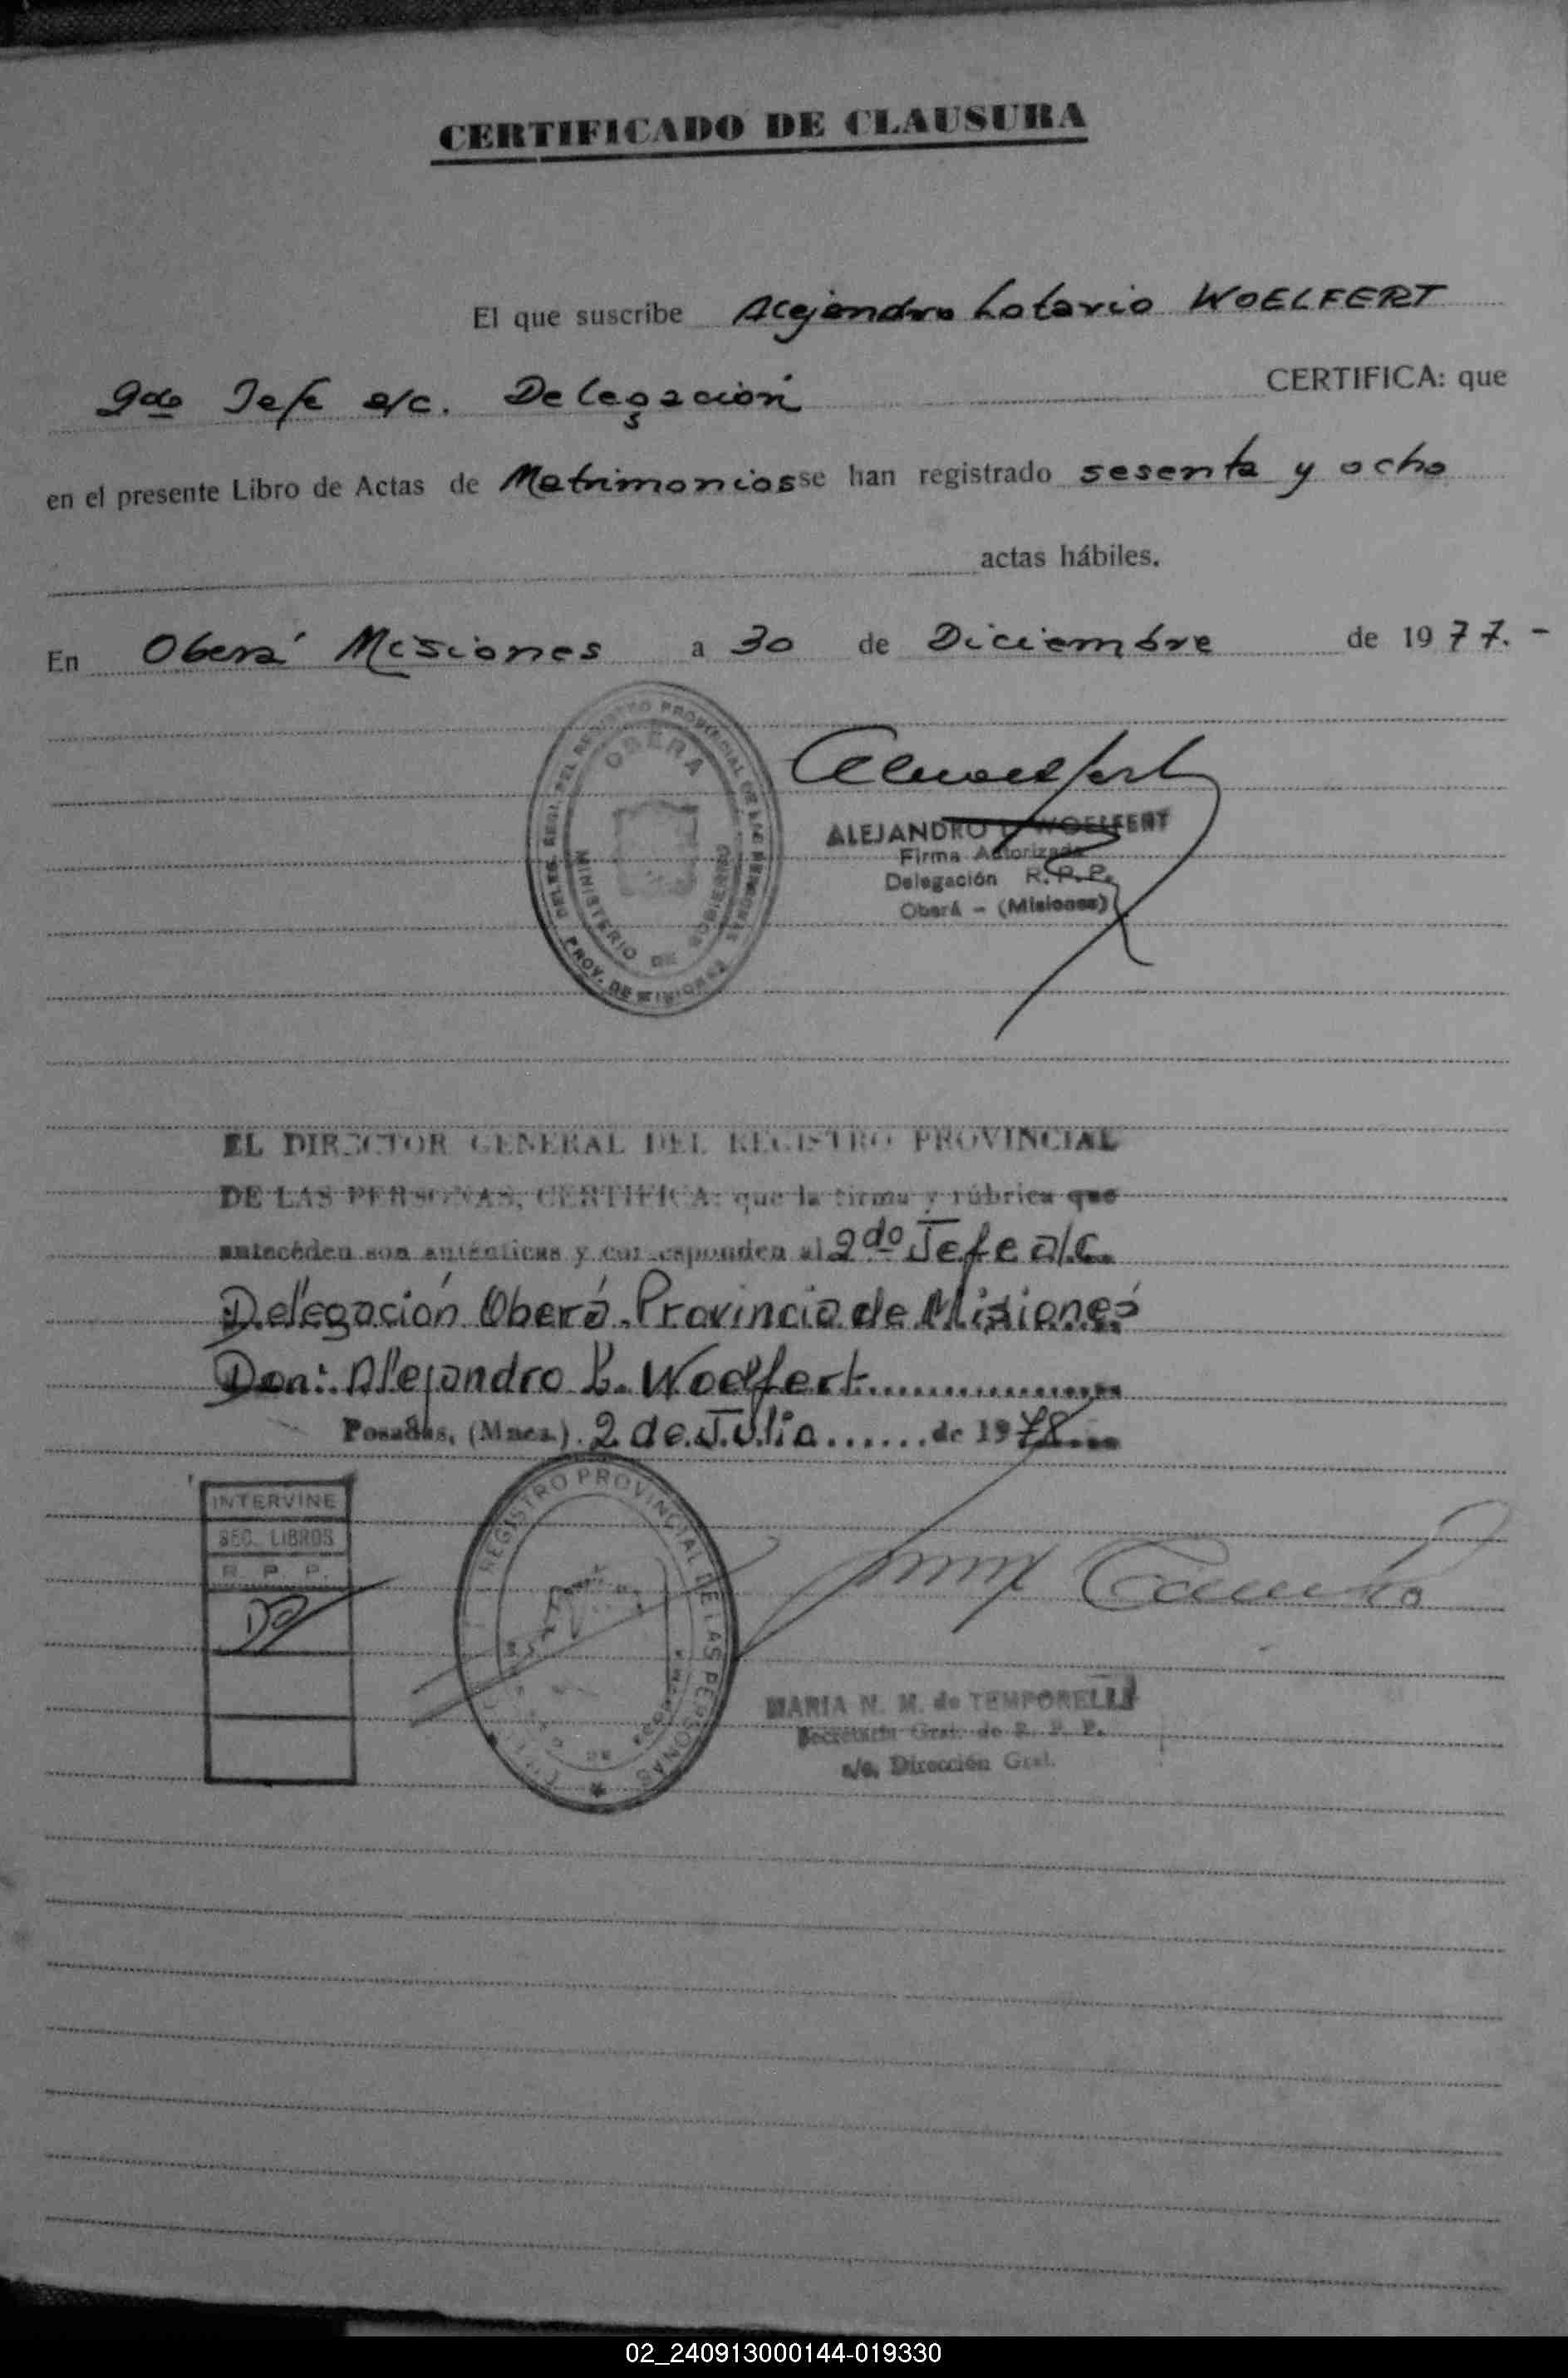 CERTIFICADO DE CLAUSURA
El que suscribe Alejandro Lotario WOELFERT
2do Jefe a/c. Delegación CERTIFICA: que
en el presente Libro de Actas de Matrimonios se han registrado sesenta y ocho
actas hábiles.
En Oberá Misiones a 30 de Diciembre de 1977.-
DELEG. REGL. DEL REGISTRO PROVINCIAL DE LAS PERSONAS
OBERA
MINISTERIO DE GOBIERNO
PROV. DE MISIONES
ALEJANDRO L. WOELFERT
Firma Autorizada
Delegación R.P.P.
Oberá - (Misiones)
EL DIRECTOR GENERAL DEL REGISTRO PROVINCIAL
DE LAS PERSONAS, CERTIFICA: que la firma y rúbrica que
anteceden son auténticas y corresponden al 2do Jefe a/c.
Delegación Oberá. Provincia de Misiones
Don: Alejandro L. Woelfert
Posadas, (Mnes.) 2 de Julio de 1978
INTERVINE
SEC. LIBROS
R. P. P.
REGISTRO PROVINCIAL DE LAS PERSONAS
MARIA N. M. de TEMPORELLI
Secretaria Gral. de R. P. P.
a/c. Dirección Gral.
02_240913000144-019330